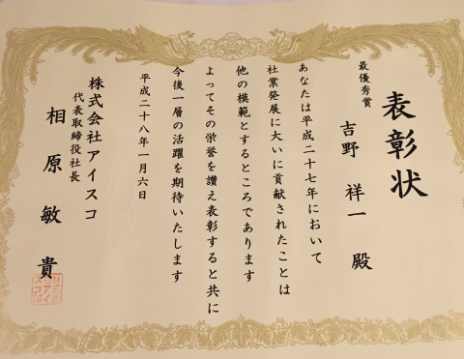 表彰状
最優秀賞
吉野 祥一 殿
あなたは平成二十七年において
社業発展に大いに貢献されたことは
他の模範とするところであります
よってその栄誉を讃え表彰すると共に
今後一層の活躍を期待いたします
平成二十八年一月六日
株式会社アイスコ
代表取締役社長
相原敏貴